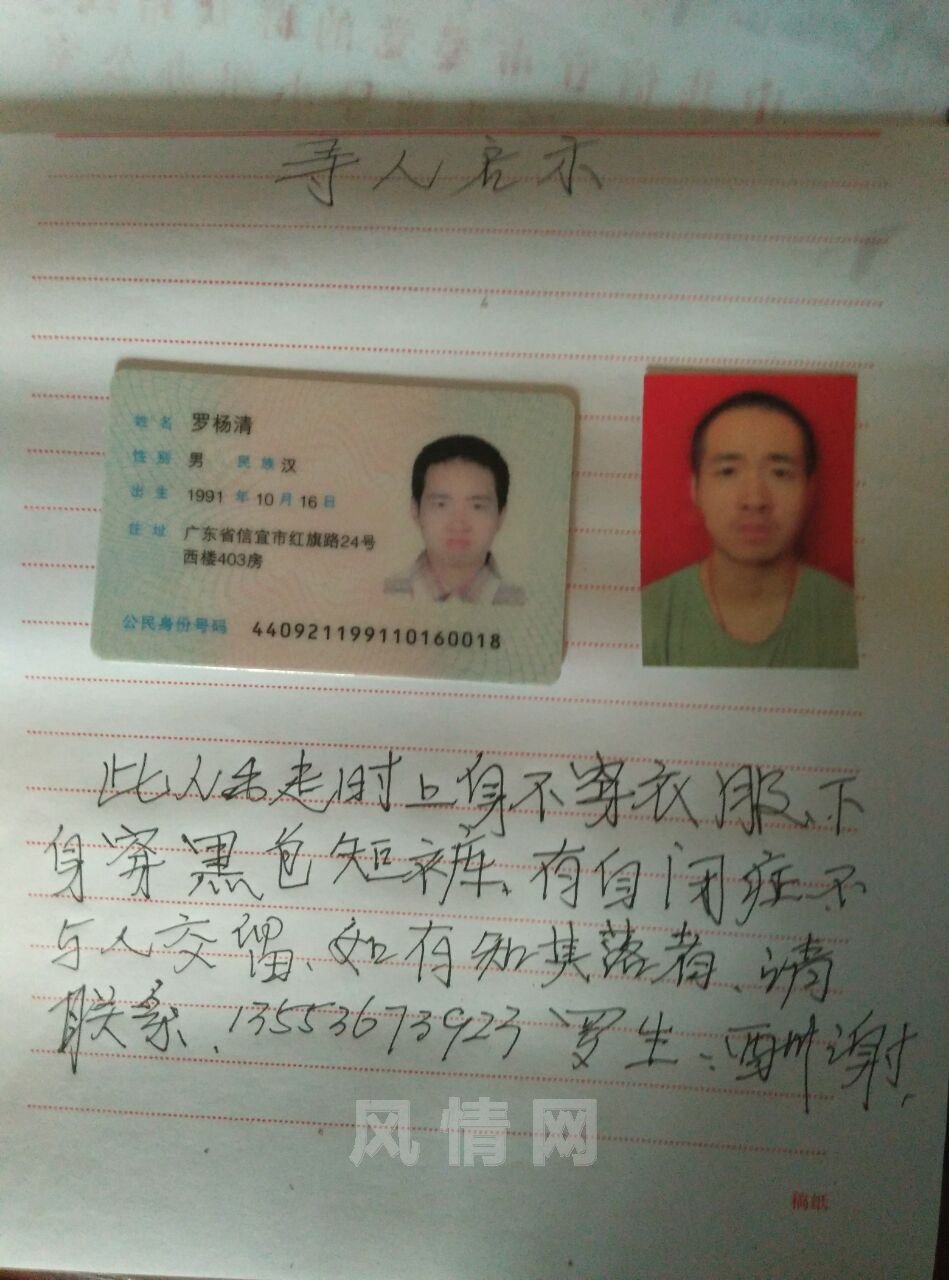 寻人启示
姓名 罗杨清
性别 男 民族 汉
出生 1991 年 10 月 16 日
住址 广东省信宜市红旗路24号
西楼403房
公民身份号码 440921199110160018
此人出走时上身不穿衣服、下
身穿黑色短裤、有自闭症不
与人交留、如有知其落者、请
联系、13553673923 罗生、酬谢、
风情网
稿纸